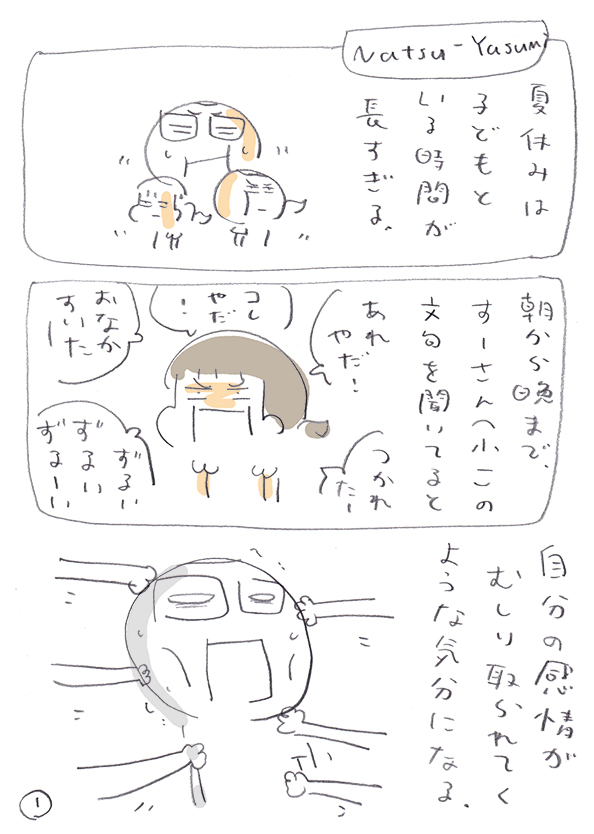 Natsu-Yasumi
夏休みは
子どもと
いる時間が
長すぎる。
朝から晩まで、
すーさん(小二)の
文句を聞いてると
あれ
やだ！
コレ
やだ
！
おなか
すいた
ー
つかれ
たー
ずるい
ずるい
ずるーい
自分の感情が
むしり取られてく
ような気分になる。
1